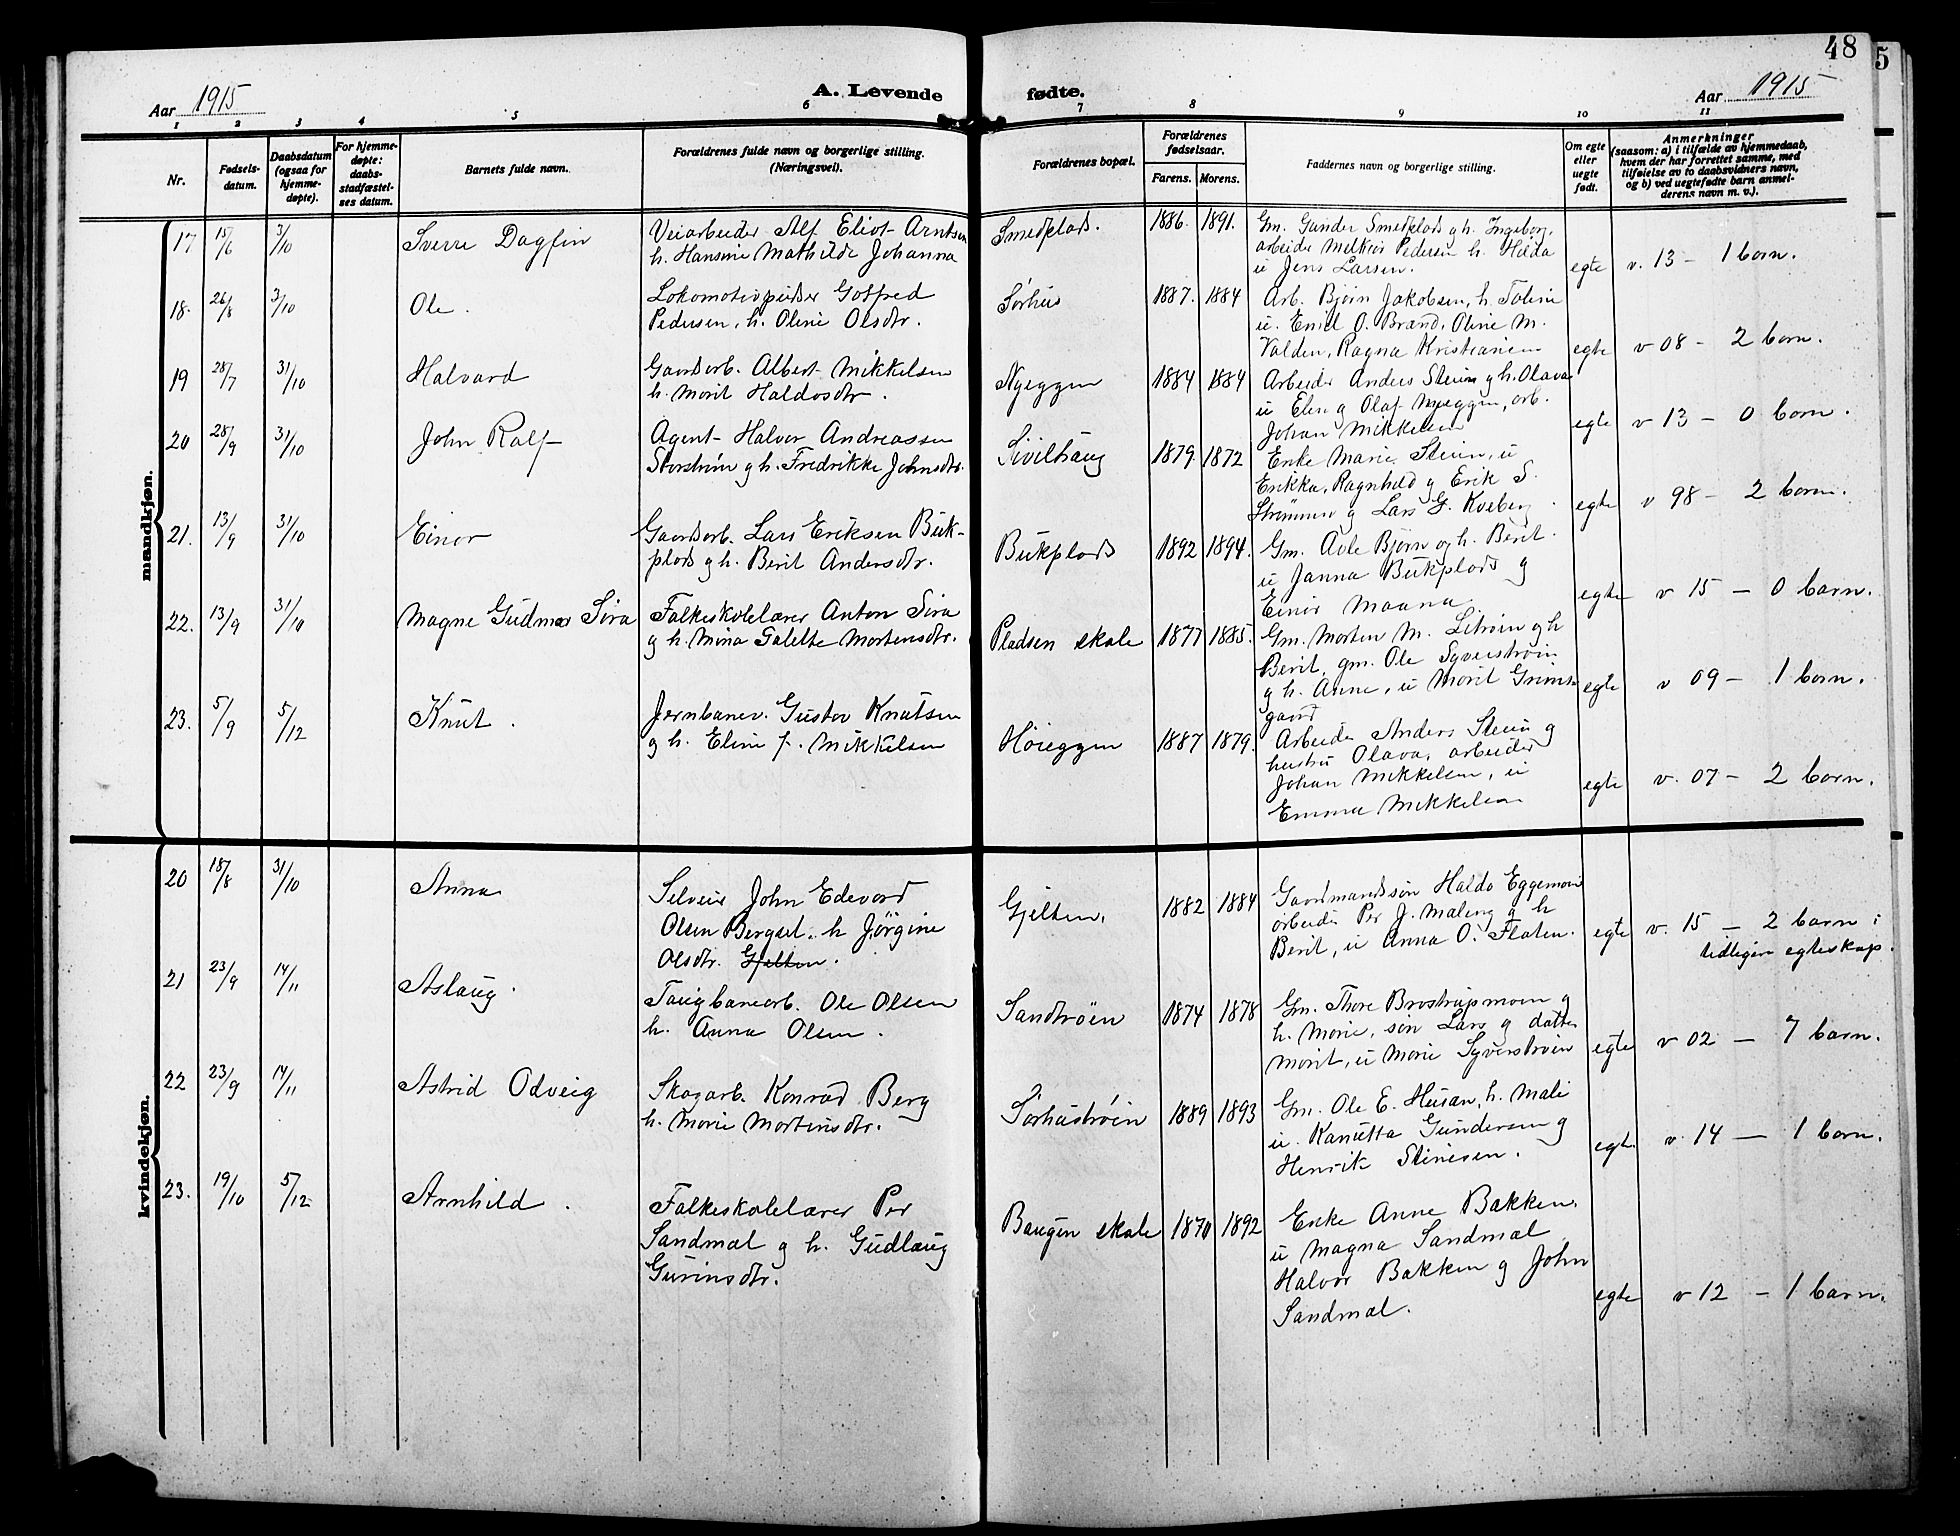 48
5
Aar 1915
A. Levende fødte.
Aar 1915
1 2 3 4 5 6 7 8 9 10 11
Nr.
Fødsels-
datum.
Daabsdatum
(ogsaa for
hjemme-
døpte).
For hjemme-
døpte:
daabs-
stadfæstel-
ses datum.
Barnets fulde navn.
Forældrenes fulde navn og borgerlige stilling.
(Næringsvei).
Forældrenes bopæl.
Forældrenes
fødselsaar.
Farens. Morens.
Faddernes navn og borgerlige stilling.
Om egte
eller
uegte
født.
Anmerkninger
(saasom: a) i tilfælde av hjemmedaab,
hvem der har forrettet samme, med
tilføielse av to daabsvidners navn,
og b) ved uegtefødte barn anmel-
derens navn m. v.).
mandkjøn.
17 15/6 3/10 Sverre Dagfin
Veiarbeider Alf Eliot Arntsen
h. Hansine Mathilde Johanna
Smedplads. 1886. 1891.
Gm. Gunder Smedplads g h. Ingebor,
arbeider Melkior Pedersen h. Hilda
u Jens Larsen.
egte v. 13 - 1 barn.
18. 26/8 3/10 Ole.
Lokomotivpudser Gotfred
Pedersen, h. Oline Olsdtr.
Sørhus 1887. 1884
Arb. Bjørn Jakobsen, h. Toline
u. Emil O. Brænd, Oline M.
Valden, Ragna Kristiansen
egte v 08 - 2 barn.
19 28/7 31/10 Halvard
Gaardarb. Albert Mikkelsen
h. Marit Haldosdtr.
Nyeggen 1884 1884
Arbeider Anders Steien g h. Olava
u Elen g Olaf Nyeggen, arb.
Johan Mikkelsen
egte v 13 - 0 barn.
20 28/9 31/10 John Ralf
Agent Halvor Andreassen
Storstrøm g h. Fredrikke Johnsdtr.
Sivilhaug 1879 1872
Enke Marie Steien, u
Erikka, Ragnhild g Erik S.
Strømmen g Lars G. Kveberg
egte v 98 - 2 barn.
21. 13/9 31/10 Einar
Gaardarb. Lars Eriksen Buk-
plads g h. Berit Andersdtr.
Bukplads 1892 1894.
Gm. Avle Bjørn og h. Berit.
u Janna Bukplads g
Einar Maana.
egte v 15 - 0 barn.
22. 13/9 31/10 Magne Gudmar Sira
Folkeskolelærer Anton Sira
g h. Mina Talette Mortensdtr.
Pladsen skole 1877 1885.
Gm. Morten M. Litrøen g h
Berit, gm. Ole Syverstrøen
g h. Anne, u Marit Grims-
gaard
egte v 09 - 1 barn.
23. 5/9 5/12 Knut.
Jernbanev. Gustav Knutsen
g h. Eline f. Mikkelsen
Høieggen 1887 1879.
Arbeider Anders Steien g
hustru Olava, arbeider
Johan Mikkelsen, u
Emma Mikkelsen
egte v. 07 - 2 barn.
kvindekjøn.
20 18/8 31/10 Anna
Selveier John Edevard
Olsen Bergset. h Jørgine
Olsdtr. Gjelten.
Gjelten. 1882 1884
Gaardmandssøn Haldo Eggemoen
arbeider Per J. Maleng g h
Berit, u Anna O. Flaten.
egte v. 15 - 2 barn i
tidligere egteskap.
21 23/9 14/11 Aslaug.
Taugbanearb. Ole Olsen
h. Anna Olsen.
Sandtrøen 1874 1878
Gm. Thore Brostrupmoen g
h. Marie, søn Lars g datter
Marit, u Marie Syverstrøen
egte v 02 - 7 barn.
22 23/9 14/11 Astrid Odveig
Skogarb. Konrad Berg
h. Marie Mortensdtr.
Sørhustrøen 1889 1893
Gm. Ole E. Husan, h. Mali
u. Kanutta Gundersen g
Henrik Stinesen.
egte v. 14 - 1 barn.
23. 19/10 5/12 Arnhild.
Folkeskolelærer Per
Sandmæl g h. Gudlaug
Gurinsdtr.
Baugen skole 1870 1892
Enke Anne Bakken,
u Magna Sandmæl
Halvor Bakken g John
Sandmæl.
egte v 12 - 1 barn.